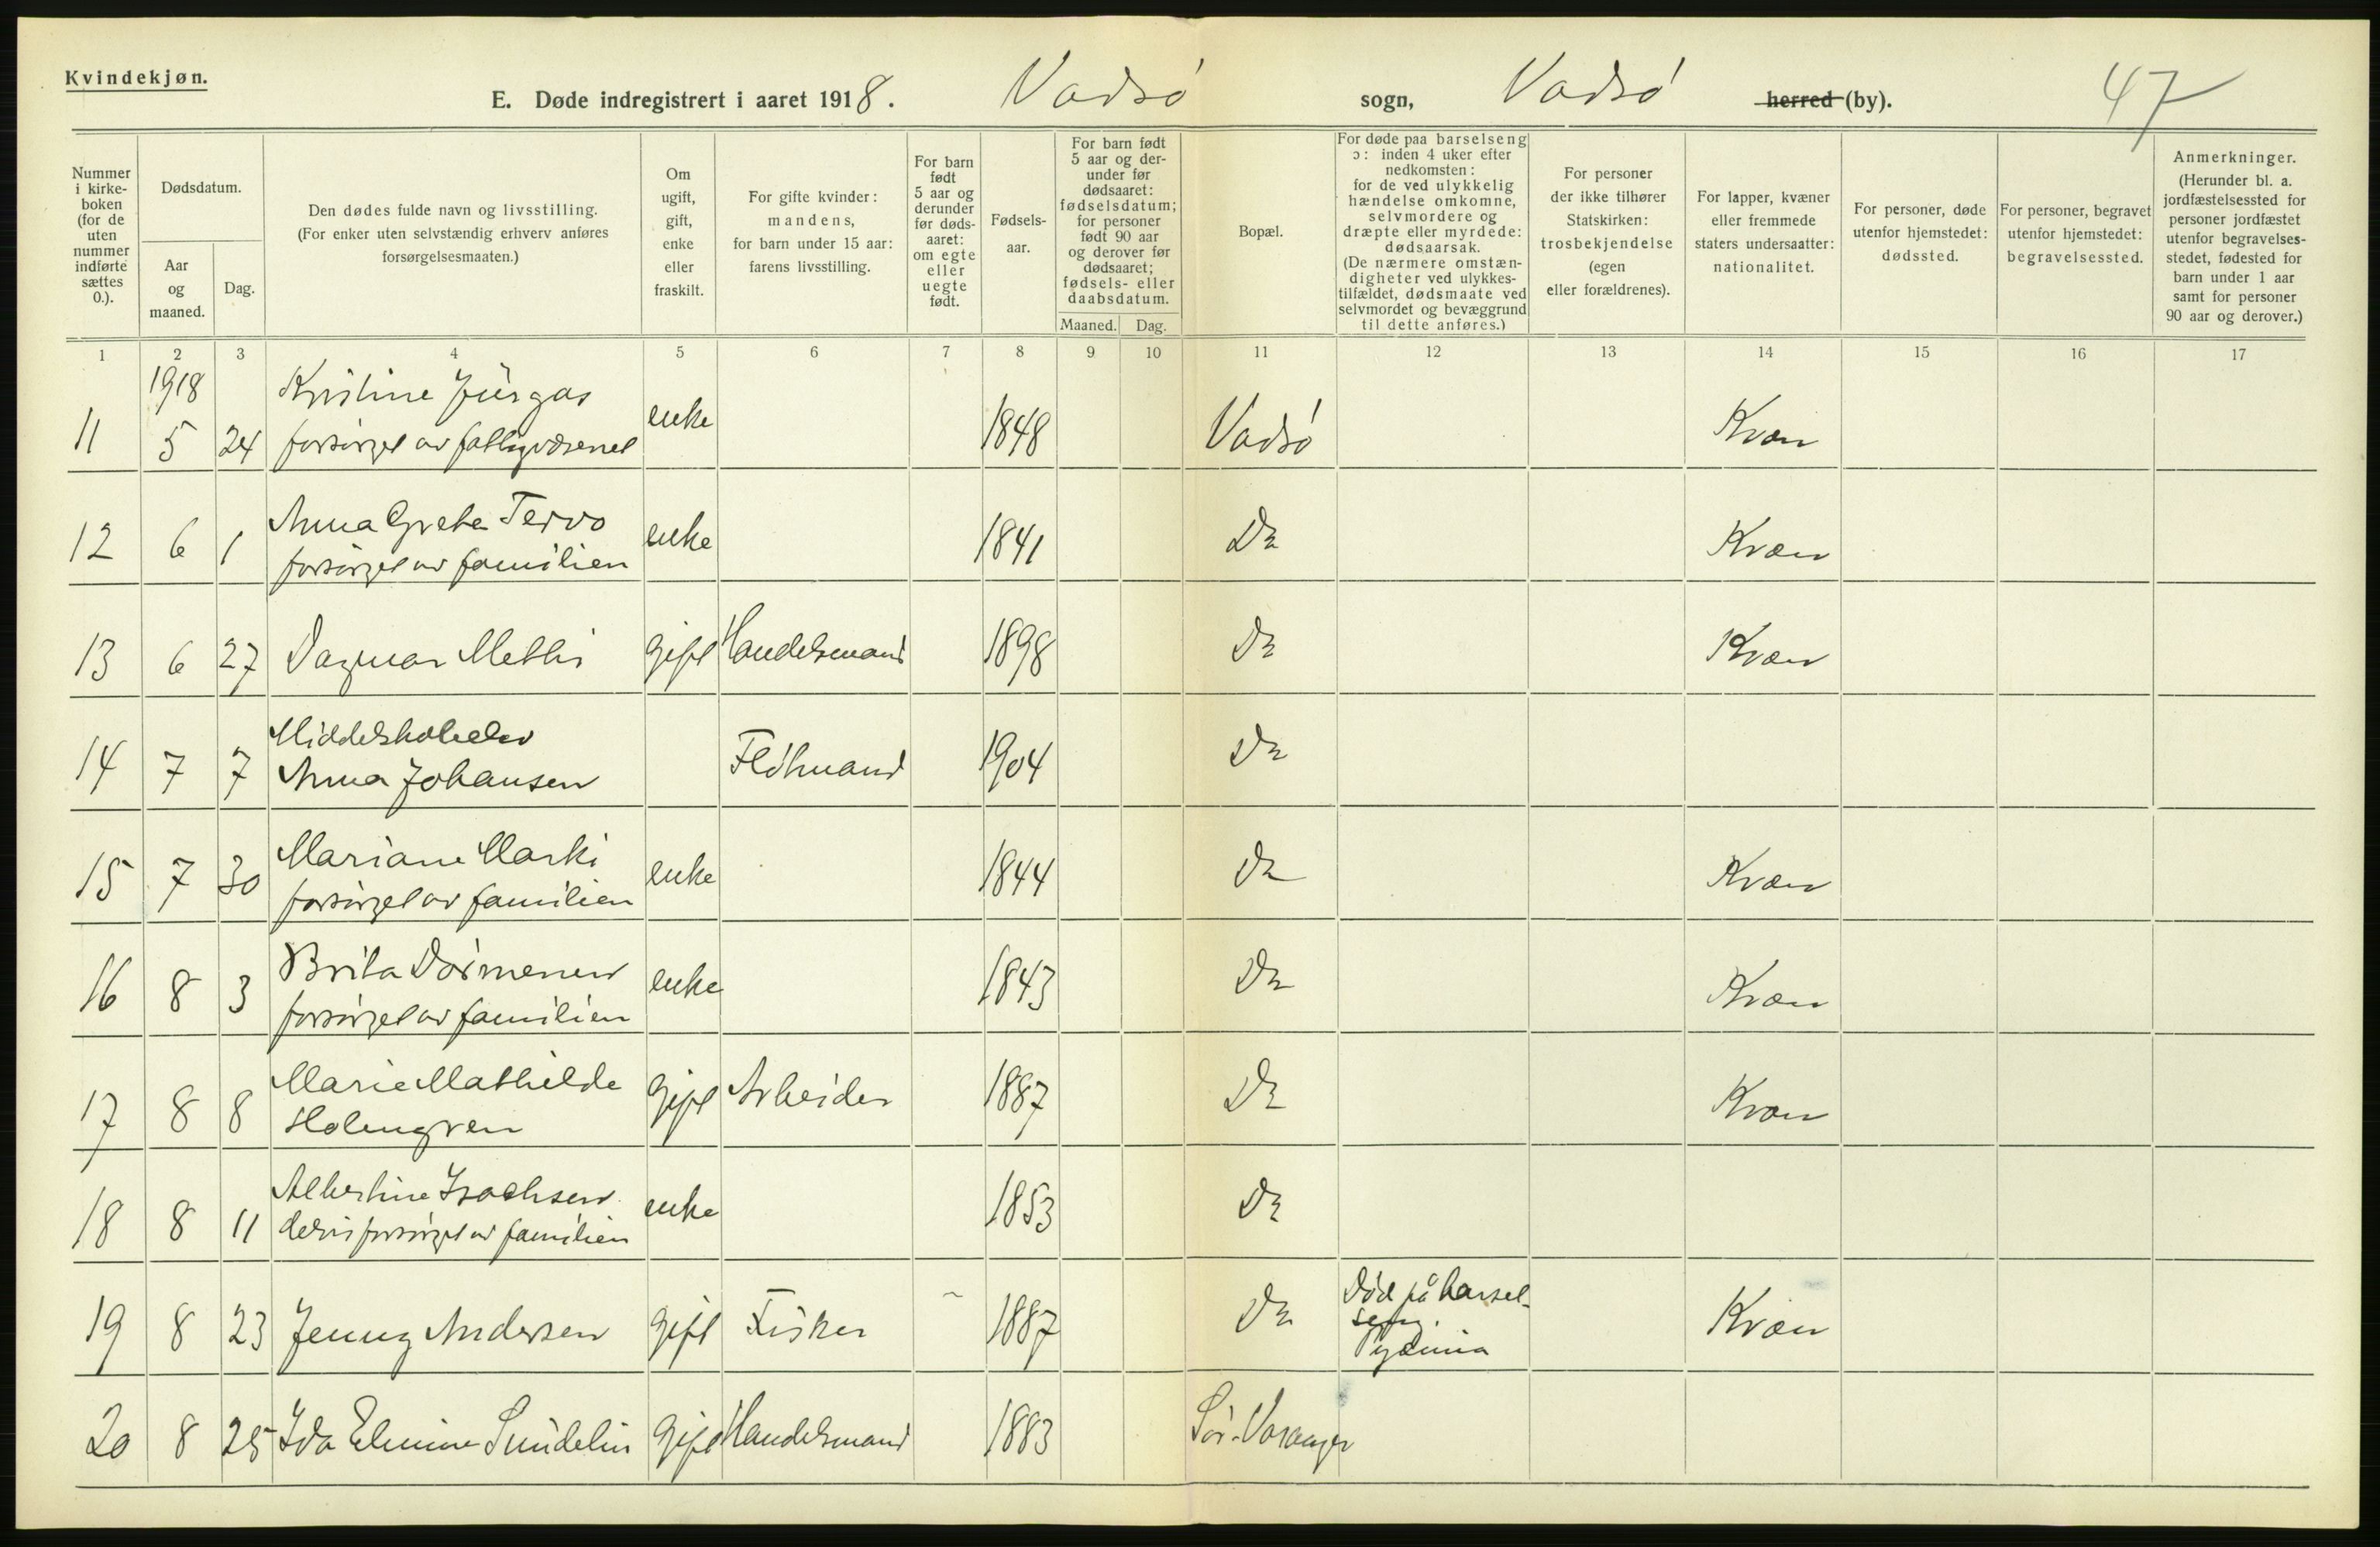 Kvindekjøn.
E. Døde indregistrert i aaret 1918. Vadsø sogn, Vadsø herred (by). 47
Nummer i kirkeboken (for de uten nummer indførte sættes 0.).
Dødsdatum.
Aar og maaned.
Dag.
Den dødes fulde navn og livsstilling.
(For enker uten selvstændig erhverv anføres forsørgelsesmaaten.)
Om ugift, gift, enke eller fraskilt.
For gifte kvinder: mandens, for barn under 15 aar: farens livsstilling.
For barn født 5 aar og derunder før dødsaaret: om egte eller uegte født.
Fødselsaar.
For barn født 5 aar og derunder før dødsaaret: fødselsdatum; for personer født 90 aar og derover før dødsaaret; fødsels- eller daabsdatum.
Maaned. Dag.
Bopæl.
For døde paa barselseng ɔ: inden 4 uker efter nedkomsten: for de ved ulykkelig hændelse omkomne, selvmordere og dræpte eller myrdede: dødsaarsak. (De nærmere omstændigheter ved ulykkestilfældet, dødsmaate ved selvmordet og bevæggrund til dette anføres.)
For personer der ikke tilhører Statskirken: trosbekjendelse (egen eller forældrenes).
For lapper, kvæner eller fremmede staters undersaatter: nationalitet.
For personer, døde utenfor hjemstedet: dødssted.
For personer, begravet utenfor hjemstedet: begravelsessted.
Anmerkninger. (Herunder bl. a. jordfæstelsessted for personer jordfæstet utenfor begravelsesstedet, fødested for barn under 1 aar samt for personer 90 aar og derover.)
1 2 3 4 5 6 7 8 9 10 11 12 13 14 15 16 17
1918
11 5 24 Kristine Jürgas enke 1848 Vadsø Kvæn
forsørget av fattigvæsenet
12 6 1 Anna Grete Tervo enke 1841 Do Kvæn
forsørget av familien
13 6 27 Dagmar Mettis gift Handelsmand 1898 Do Kvæn
14 7 7 Middelskoleelev
Anna Johansen FlØtmand 1904 Do
15 7 30 Mariane Marki enke 1844 Do Kvæn
forsørget av familien
16 8 3 Brita Dørmenen enke 1843 Do Kvæn
forsørget av familien
17 8 8 Marie Mathilde gift Arbeider 1887 Do Kvæn
Holmgren
18 8 11 Albertine Isachsen enke 1853 Do
delvis forsørget av familien
19 8 23 Jenny Andersen gift Fisker 1887 Do Død på barsel-
seng.
Pyæmia Kvæn
20 8 25 Ida Elmine Sundelin gift Handelsmand 1883 Sør-Varanger